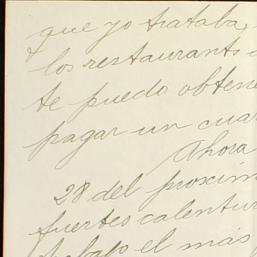 que yo trataba
los restaurants
te puedo obtene
pagar un cua
Ahora
28 del proxim
fuertes calentu
trabajo el más